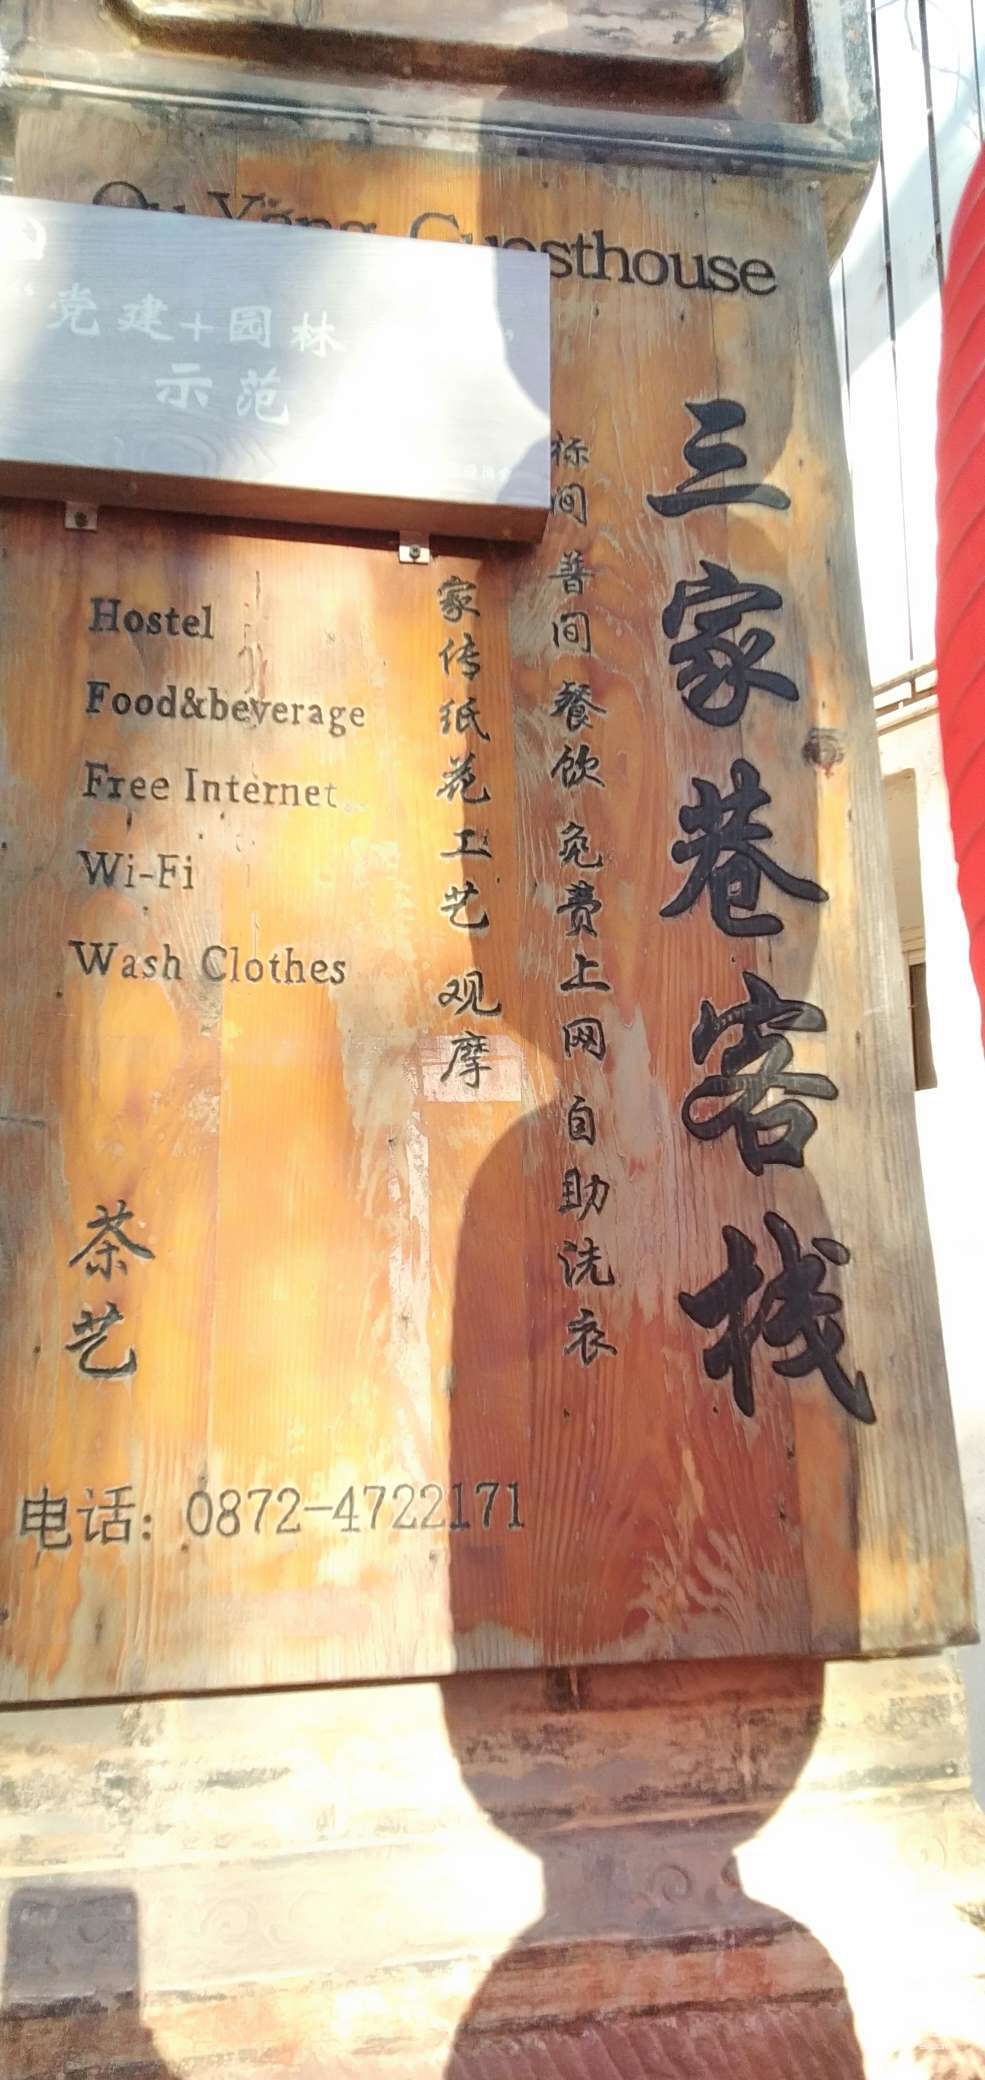 Guesthouse
党建+园林
示范
三家巷客栈
标间 普间 餐饮 免费上网 自助洗衣
家传纸花工艺 观摩
Hostel
Food&beverage
Free Internet
Wi-Fi
Wash Clothes
茶艺
电话：0872-4722171